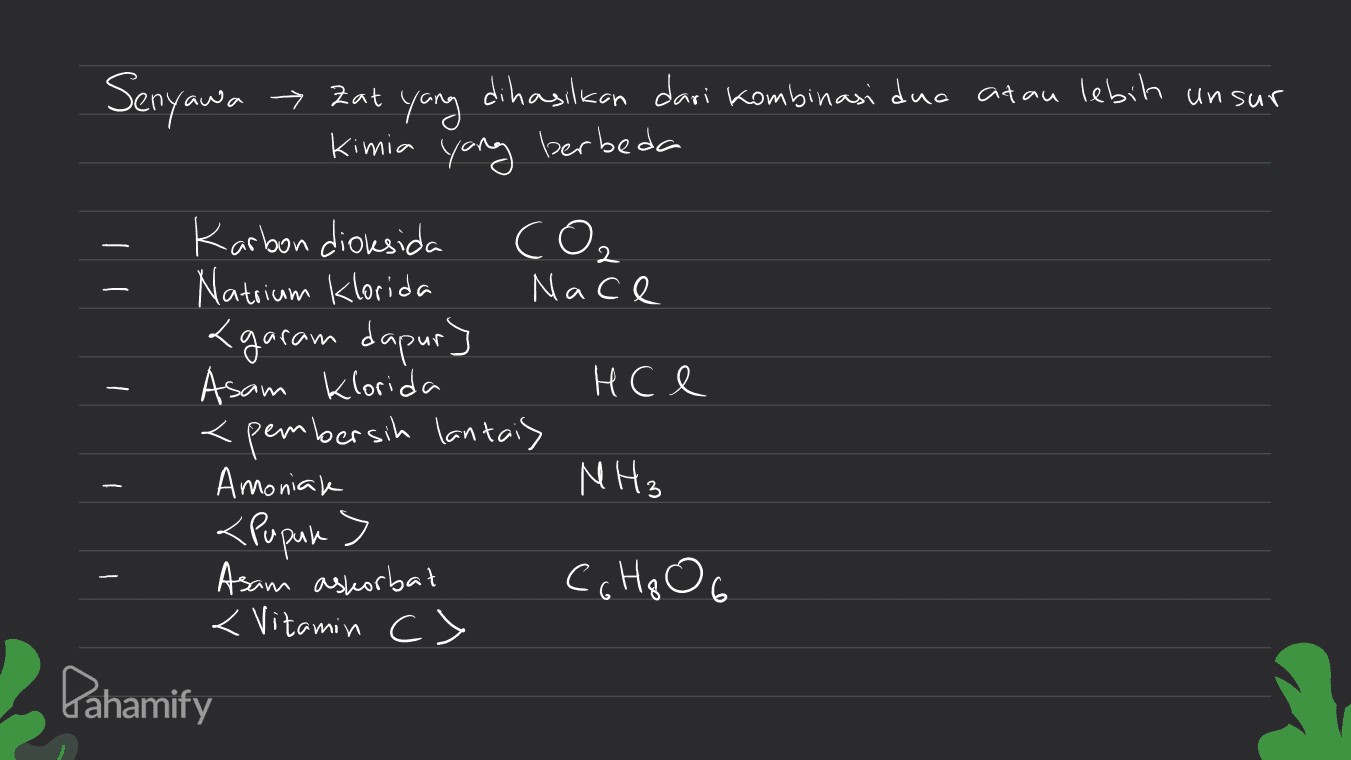 Senyawa → zat yang dihasilkan dari kombinasi dua atau lebih unsur
kimia yang berbeda
- Karbon dioksida CO₂
- Natrium klorida NaCl
<garam dapur>
- Asam klorida HCl
<pembersih lantai>
- Amoniak NH₃
<Pupuk>
- Asam askorbat C₆H₈O₆
<Vitamin C>
Pahamify